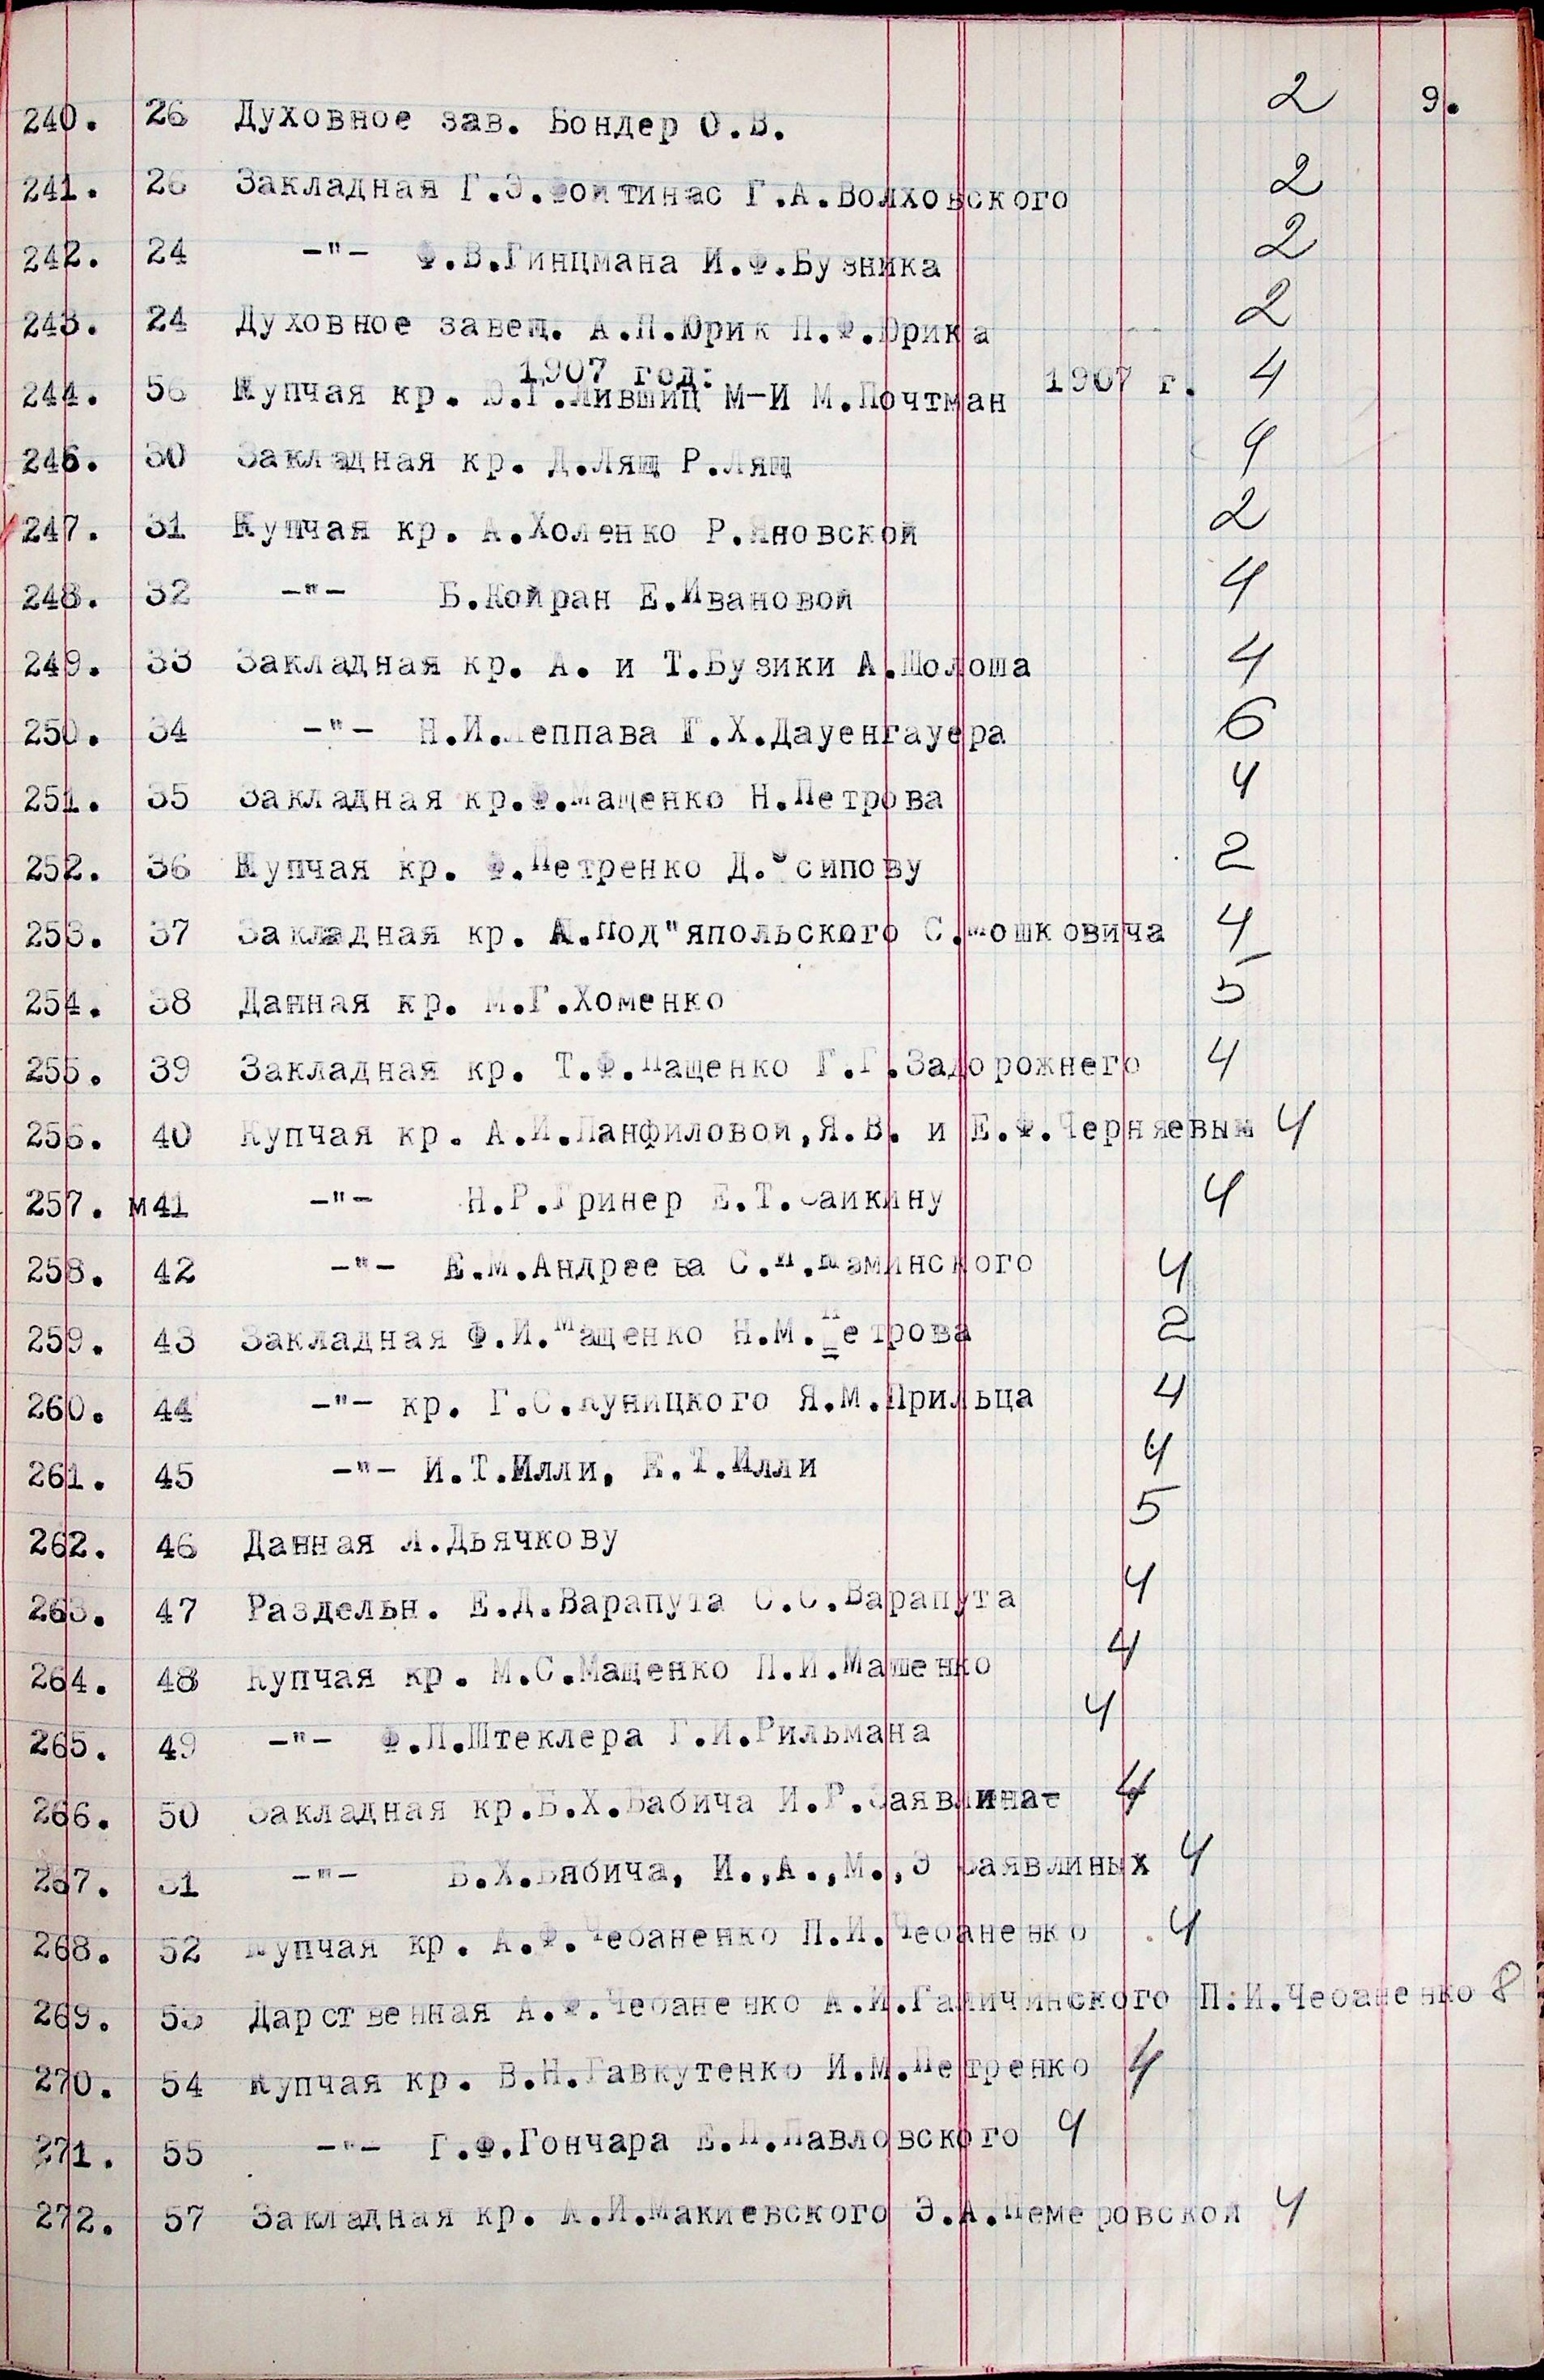 240. 26 Духовное зав. Бондер О.В. 2 9.
241. 26 Закладная Г.Э.Фойтинас Г.А.Волховского 2
242. 24 -"- Ф.В.Гинцмана И.Ф.Бузника 2
243. 24 Духовное завещ. А.П.Юрик П.Ф.Юрика 2
1907 год:
244. 56 Купчая кр. Ю.Г.Лившиц М-И М.Почтман 1907 г. 4
246. 30 Закладная кр. Д.Лящ Р.Лящ 4
247. 31 Купчая кр. А.Холенко Р.Яновской 2
248. 32 -"- Б.Койран Е.Ивановой 4
249. 33 Закладная кр. А. и Т.Бузики А.Шолоша 4
250. 34 -"- Н.И.Леппава Г.Х.Дауенгауера 6
251. 35 Закладная кр.Ф.Мащенко Н.Петрова 4
252. 36 Купчая кр. Ф.Петренко Д.Осипову 2
253. 37 Закладная кр. А.Под"япольского С.Мошковича 4
254. 38 Данная кр. М.Г.Хоменко 5
255. 39 Закладная кр. Т.Ф.Пащенко Г.Г.Задорожнего 4
256. 40 Купчая кр. А.И.Панфиловой,Я.В. и Е.Ф.Черняевым 4
257. м41 -"- Н.Р.Гринер Е.Т.Саикину 4
258. 42 -"- Е.М.Андреева 4
259. 43 Закладная Ф.И.Мащенко Н.М.Петрова 2
260. 44 -"- кр. Г.С.Куницкого Я.М.Прильца 4
261. 45 -"- И.Т.Илли, Е.Т.Илли 4
262. 46 Данная Л.Дьячкову 5
263. 47 Раздельн. Е.Д.Варапута С.С.Варапута 4
264. 48 Купчая кр. М.С.Мащенко П.И.Машенко 4
265. 49 -"- Ф.П.Штеклера Г.И.Рильмана 4
266. 50 Закладная кр.Б.Х.Бабича И.Г.Заявлина 4
267. 51 -"- Б.Х.Бябича, И.,А.,М.,Э Заявлиных 4
268. 52 Купчая кр. А.Ф.Чебаненко П.И.Чебаненко 4
269. 53 Дарственная А.Ф.Чебаненко А.И.Галичинского П.И.Чебаненко 8
270. 54 Купчая кр. В.Н.Гавкутенко И.М.Петренко 4
271. 55 -"- Г.Ф.Гончара Е.П.Павловского 4
272. 57 Закладная кр. А.И.Макиевского Э.А.Чемеровской 4